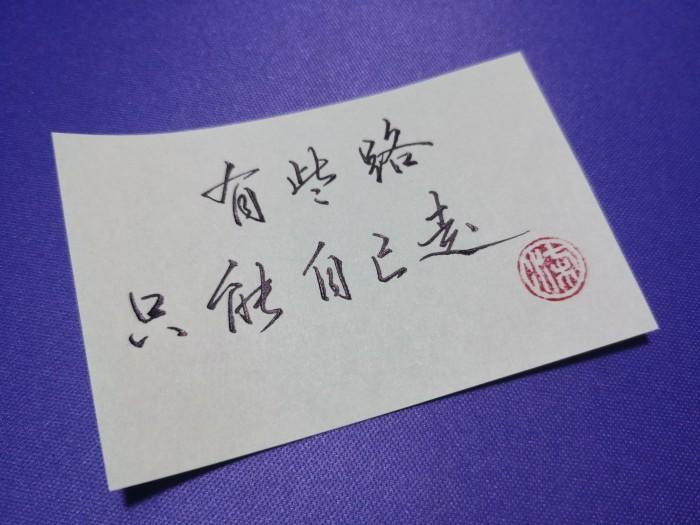 有些路
只能自己走